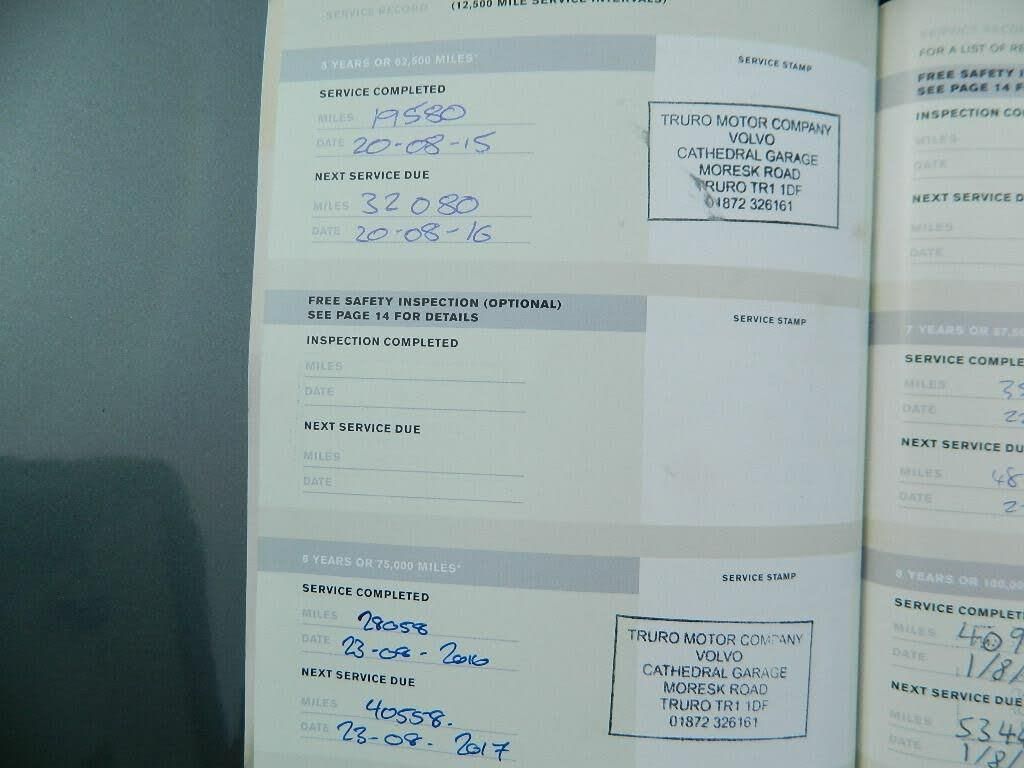 SERVICE RECORD (12,500 MILE SERVICE INTERVALS)
5 YEARS OR 62,500 MILES*
SERVICE STAMP
SERVICE COMPLETED
MILES 19580
DATE 20-08-15
NEXT SERVICE DUE
MILES 32080
DATE 20-08-16
TRURO MOTOR COMPANY
VOLVO
CATHEDRAL GARAGE
MORESK ROAD
TRURO TR1 1DF
01872 326161
FREE SAFETY INSPECTION (OPTIONAL)
SEE PAGE 14 FOR DETAILS
SERVICE STAMP
INSPECTION COMPLETED
MILES
DATE
NEXT SERVICE DUE
MILES
DATE
6 YEARS OR 75,000 MILES*
SERVICE STAMP
SERVICE COMPLETED
MILES 28058
DATE 23-08-2016
NEXT SERVICE DUE
MILES 40558.
DATE 23-08-2017
TRURO MOTOR COMPANY
VOLVO
CATHEDRAL GARAGE
MORESK ROAD
TRURO TR1 1DF
01872 326161
SERVICE RECO
FOR A LIST OF RE
FREE SAFETY I
SEE PAGE 14 F
INSPECTION CO
MILES
DATE
NEXT SERVICE D
MILES
DATE
7 YEARS OR 87,50
SERVICE COMPLE
MILES
DATE
NEXT SERVICE DU
MILES 48
DATE
8 YEARS OR 100,00
SERVICE COMPLET
MILES 409
DATE 1/8/
NEXT SERVICE DUE
MILES 5344
DATE 1/8/